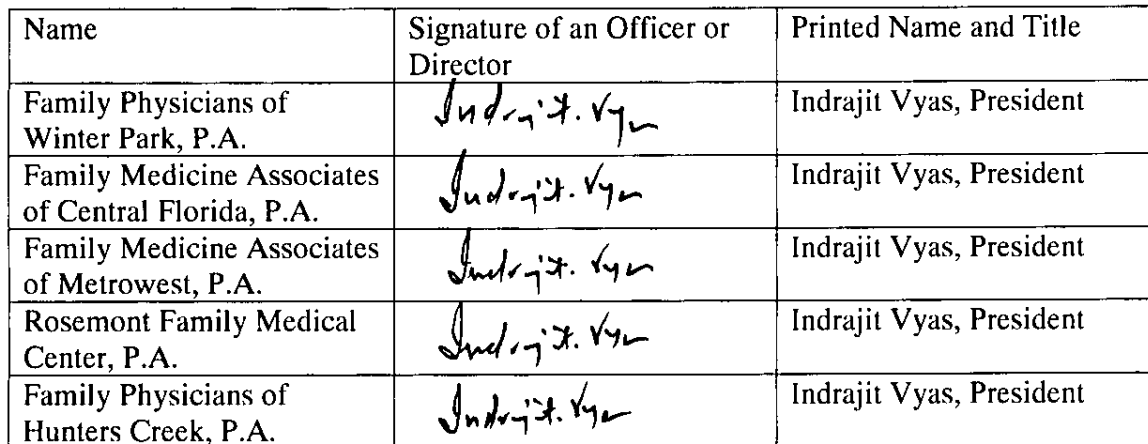 Name
Signature of an Officer or
Director
Printed Name and Title
Family Physicians of
Winter Park, P.A.
Indrajit. Vyas
Indrajit Vyas, President
Family Medicine Associates
of Central Florida, P.A.
Indrajit. Vyas
Indrajit Vyas, President
Family Medicine Associates
of Metrowest, P.A.
Indrajit. Vyas
Indrajit Vyas, President
Rosemont Family Medical
Center, P.A.
Indrajit. Vyas
Indrajit Vyas, President
Family Physicians of
Hunters Creek, P.A.
Indrajit. Vyas
Indrajit Vyas, President